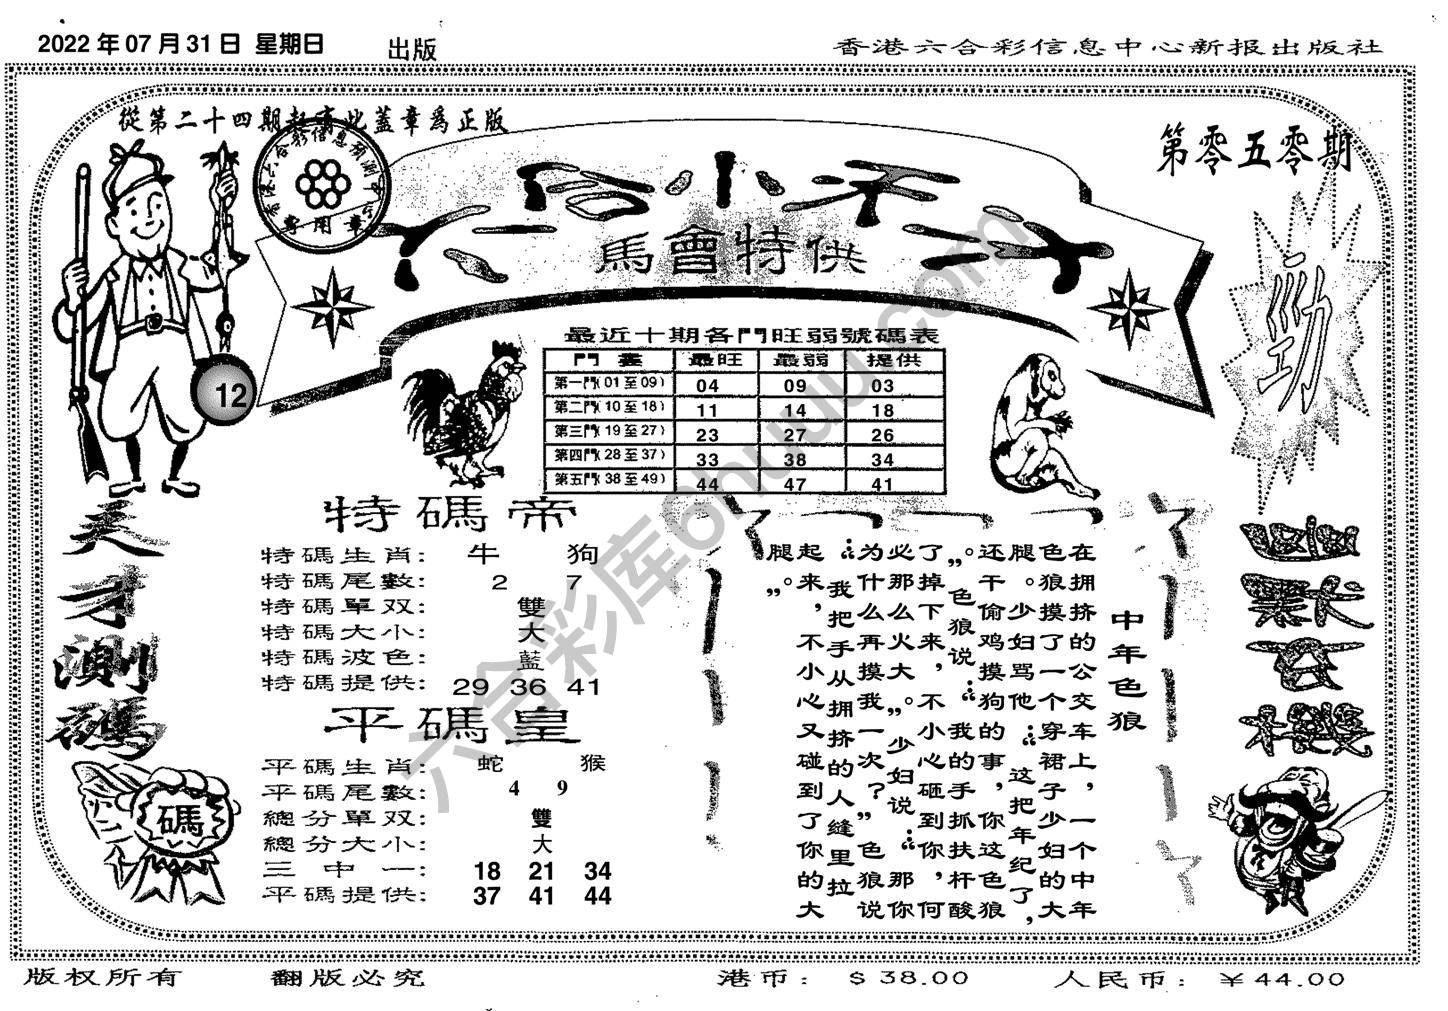 2022年07月31日 星期日 出版
香港六合彩信息中心新报出版社
從第二十四期起有此蓋章爲正版
第零五零期
專用章
馬會特供
勁
12
最近十期各門旺弱號碼表
最旺 最弱 提供
第一門(01至09) 04 09 03
第二門(10至18) 11 14 18
第三門(19至27) 23 27 26
第四門(28至37) 33 38 34
第五門(38至49) 44 47 41
天才測碼
碼
特碼帝
特碼生肖: 牛 狗
特碼尾數: 2 7
特碼單双: 雙
特碼大小: 大
特碼波色: 藍
特碼提供: 29 36 41
平碼皇
平碼生肖: 蛇 猴
平碼尾數: 4 9
總分單双: 雙
總分大小: 大
三中一: 18 21 34
平碼提供: 37 41 44
中年色狼
在拥挤的公交车上,一个中年
色狼摸了一个穿裙子少妇的大
腿。少妇骂他:“这把年纪了,
还干偷鸡摸狗的事,你这色狼
。”色狼说:“我的手抓扶杆酸
了掉下来,不小心砸到你,何
必那么火大。”少妇说:“那你
为什么再摸我一次?”色狼说
:“我把手从拥挤的人缝里拉
起来,不小心又碰到了你的大
腿。”
六合彩库6huuu.com
版权所有 翻版必究 港币: $38.00 人民币: ￥44.00